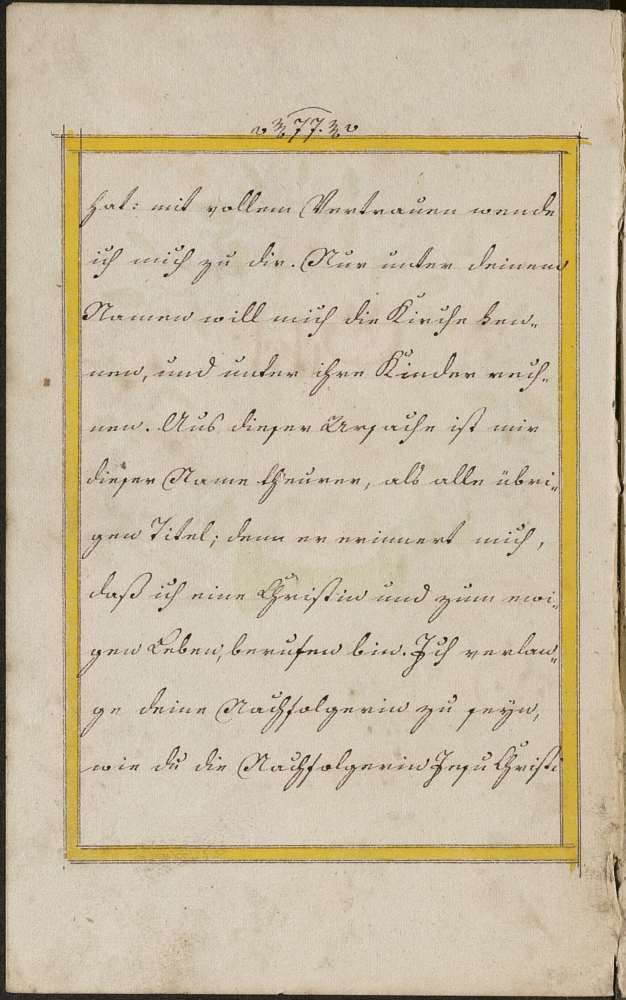 77.
hat: mit vollem Vertrauen wende
ich mich zu dir. Nur unter deinem
Namen will mich die Kirche ken„
nen, und unter ihre Kinder rech„
nen. Aus dieser Ursache ist mir
dieser Name theurer, als alle übri„
gen Titel; denn er erinnert mich,
daß ich eine Christin und zum ewi„
gen Leben, berufen bin. Ich verlan„
ge deine Nachfolgerin zu seyn,
wie du die Nachfolgerin Jesu Christi